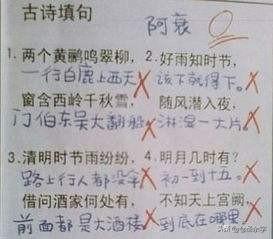 古诗填句 阿衰 0
1. 两个黄鹂鸣翠柳, 2. 好雨知时节,
一行白鹿上西天 该下就得下。
窗含西岭千秋雪, 随风潜入夜,
门伯东吴大翻船 淋湿一大片。
3. 清明时节雨纷纷, 4. 明月几时有?
路上行人都没伞 初一到十五。
借问酒家何处有, 不知天上宫阙,
前面都是大酒楼 到底在哪里